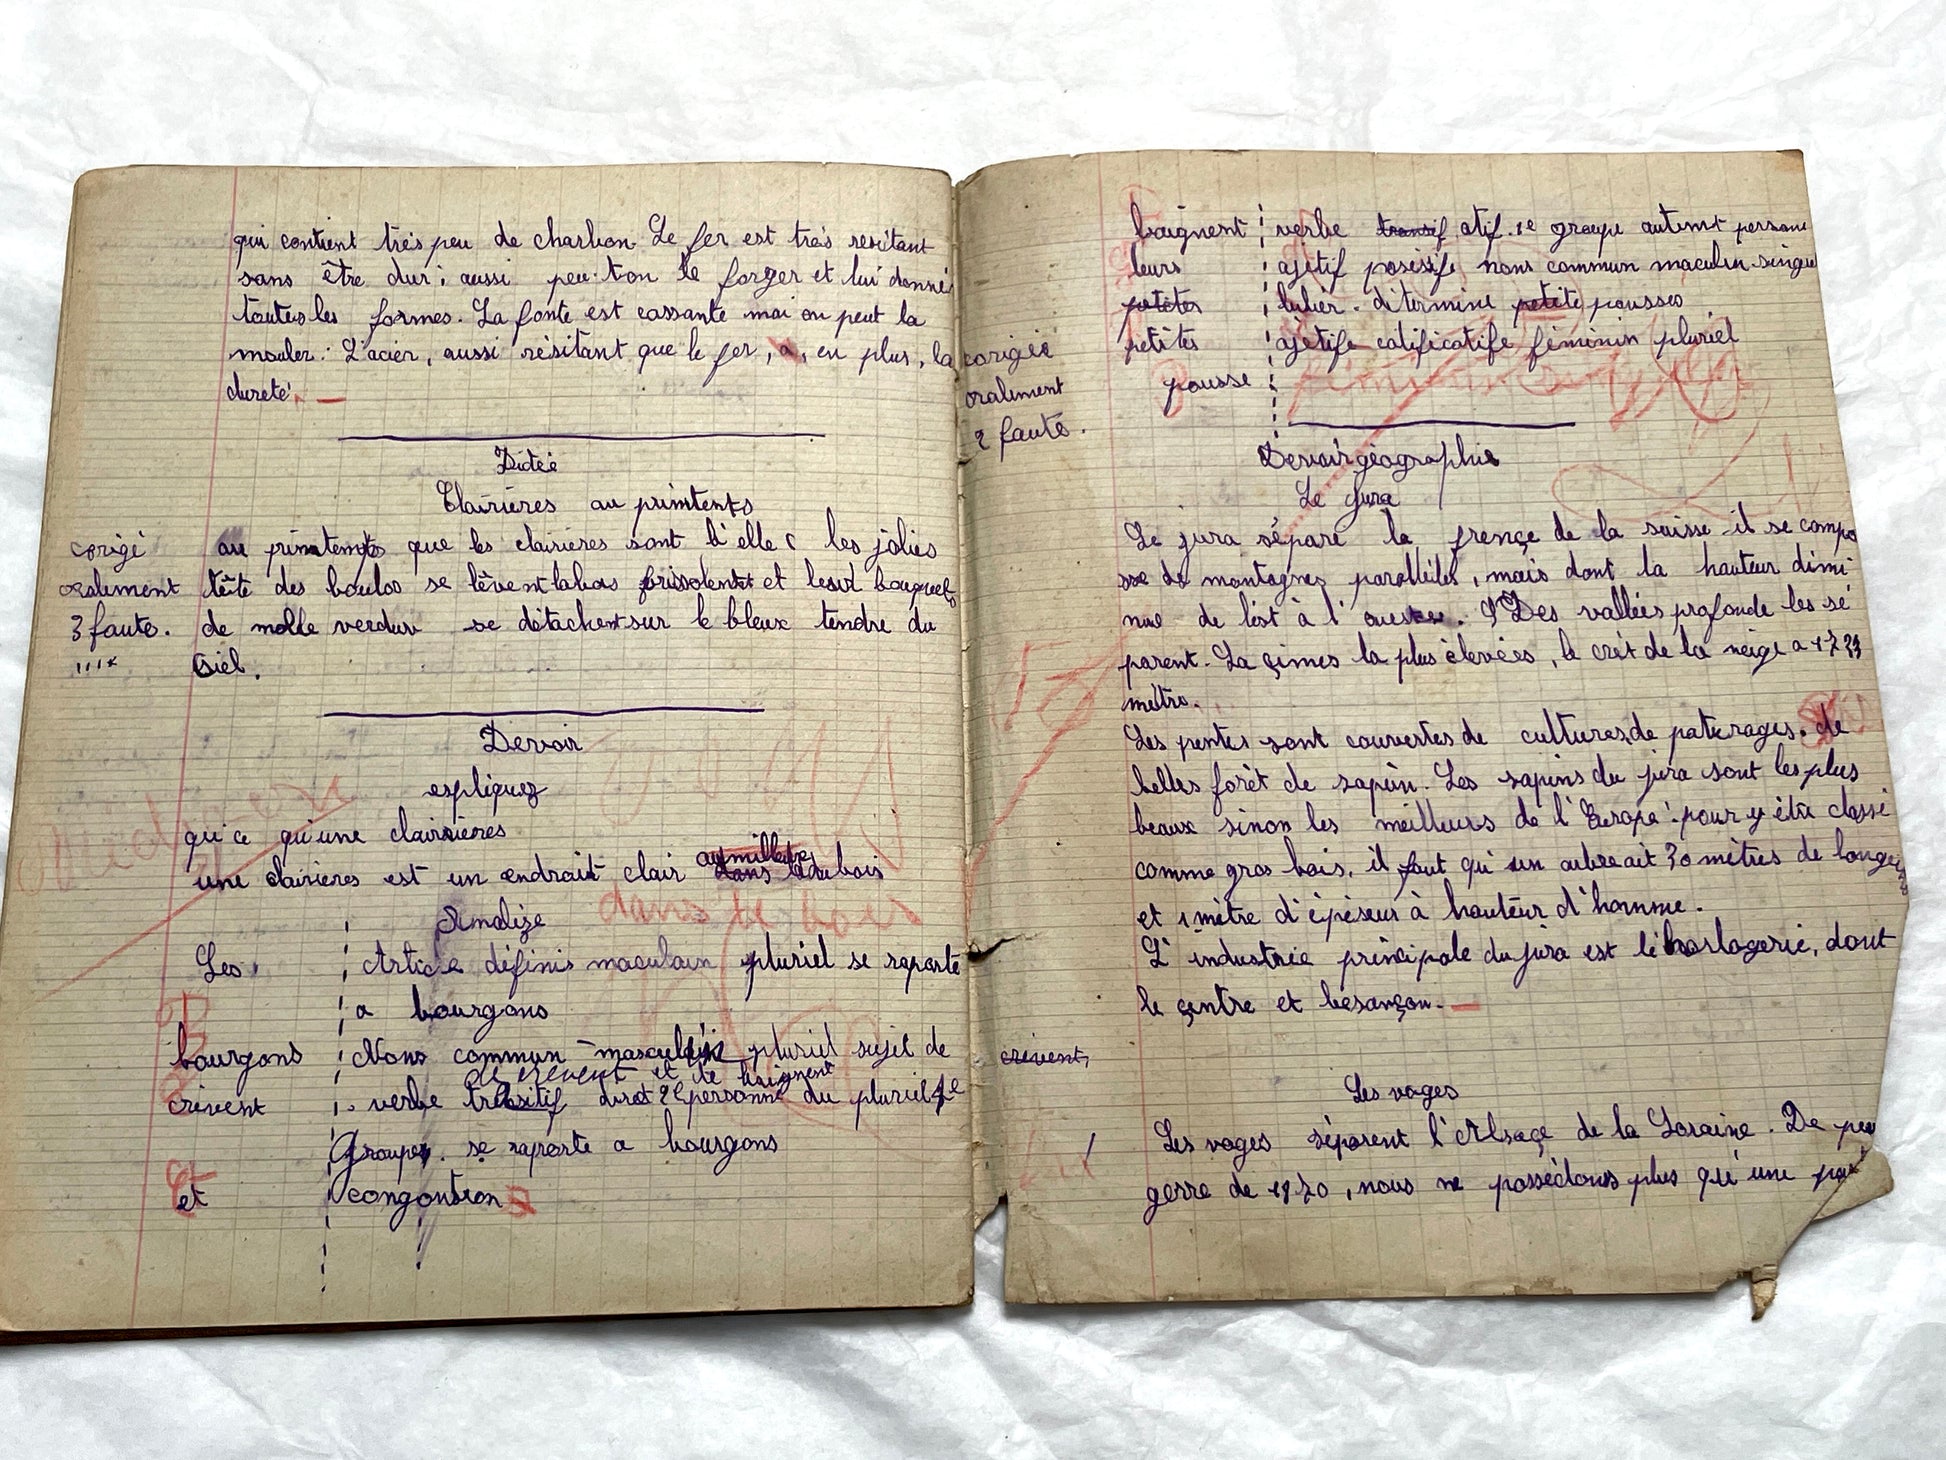 qui contient très peu de charbon. Le fer est très resitant
sans être dur; aussi peu-t-on le forger et lui donné
toutes les formes. La fonte est cassante mai on peut la
mouler. L'acier, aussi résitant que le fer, a, en plus, la
dureté.
Dictée
Clairières au printents
corigé
oralement
3 faute.
au printemps que les clairieres sont belles les jolies
tête des boulos se lèvent labas frissolentet et leurs bouquets
de molle verdure se détachent sur le bleux tendre du
Ciel.
Devoir
espliquez
qu'ce qu'une clairières
une clairieres est un endrait clair au millieu dans du bois
dans le bois
Analize
Les Article définis masculain pluriel se raporte
a bourgons
bourgons Nons commun masculin pluriel sujet de
de crèvent et de baignent
crèvent verbe trasitif dirct personne du pluriel 1e
Groupe. se raporte a bourgons
et congontion
corigée
oralement
2 faute.
baignent verbe transif atif. 1e groupe
leurs ajétif posissife nons commun maculin singu
petites lulier. ditermine petite pousses
petites ajétife calificatife féminin pluriel
pousse
Devoir géographie
Le Jura
Le jura séparé la françe de la suisse il se compo
sse de montagnes paralléles, mais dont la hauteur dimi
nue de lést à l'ouest. Des vallées profonde les sé
parent. La çimes la plus élevées, le crèt de la neige a 1723
mètre.
Les pentes sont couvertes de cultures, de paturages, de
belles forèt de sapin. Les sapins du jura sont les plus
beaux sinon les meilleurs de l'Europe: pour y être classé
comme gros bois, il faut qu'un aubre ait 30 mètres de longeur
et 1 mètre d'épéseur à hauteur d'homme.
L'industrie principale du jura est lé horlogerie, dont
le çentre et besançon.
crèvent,
Les voges
Les voges séparent l'Alsaçe de la Loraine. De
gerre de 1970, nous ne possédons plus qu'une